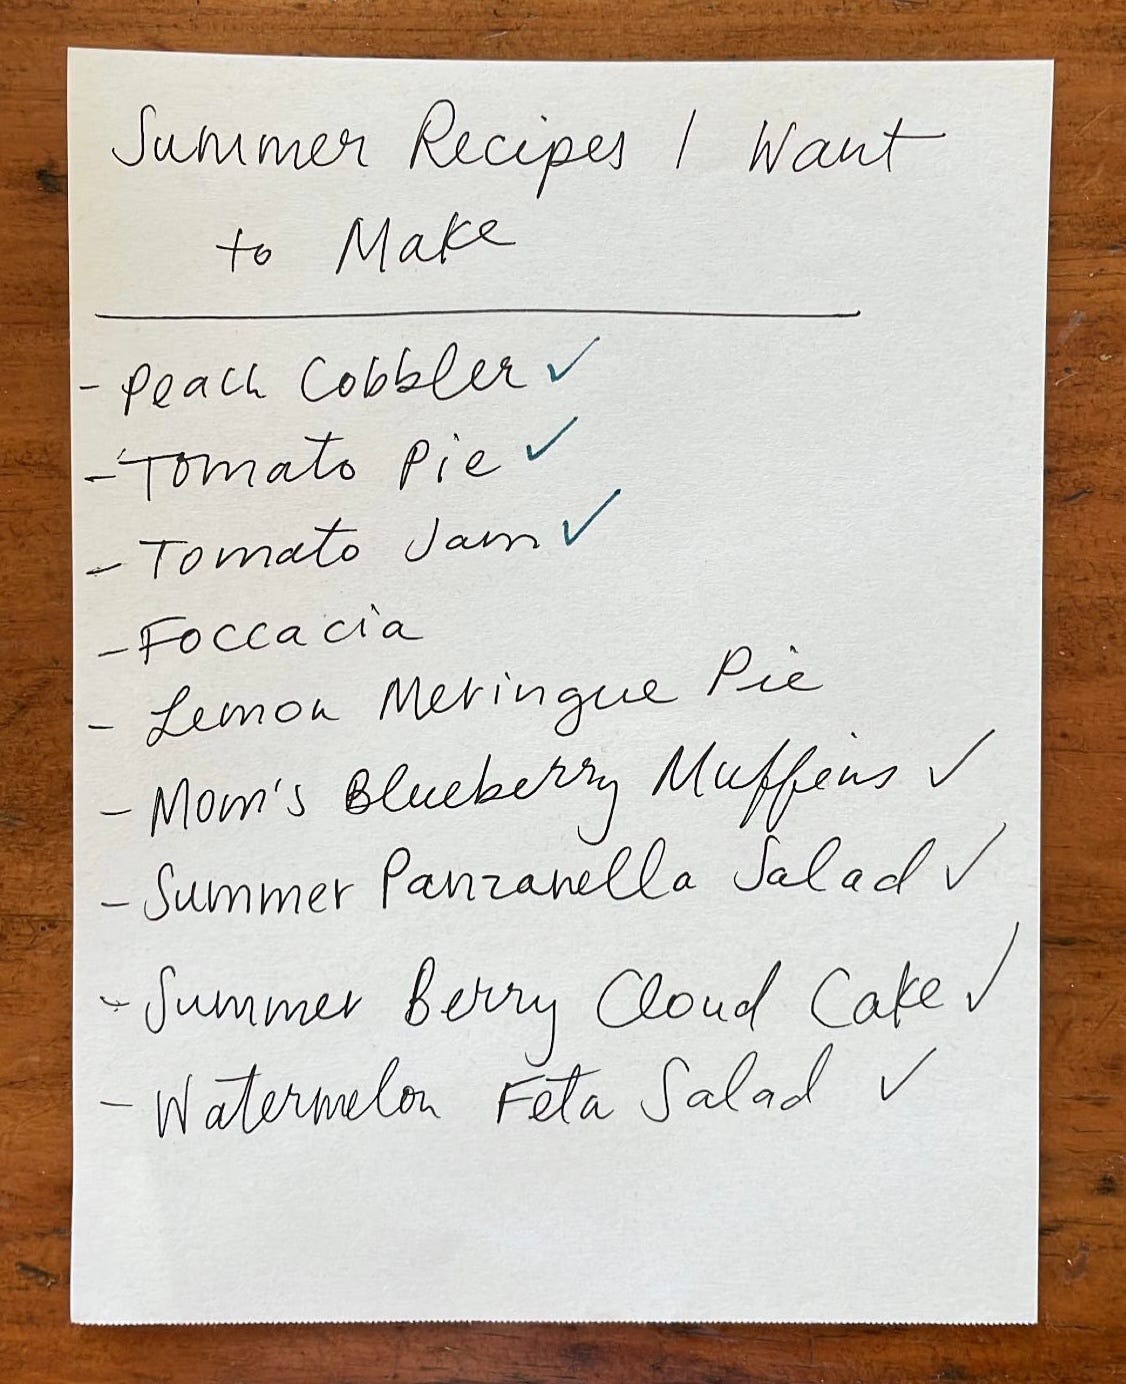 Summer Recipes I Want
to Make
- Peach Cobbler ✓
- Tomato Pie ✓
- Tomato Jam ✓
- Foccacia
- Lemon Meringue Pie
- Mom's Blueberry Muffins ✓
- Summer Panzanella Salad ✓
- Summer Berry Cloud Cake ✓
- Watermelon Feta Salad ✓